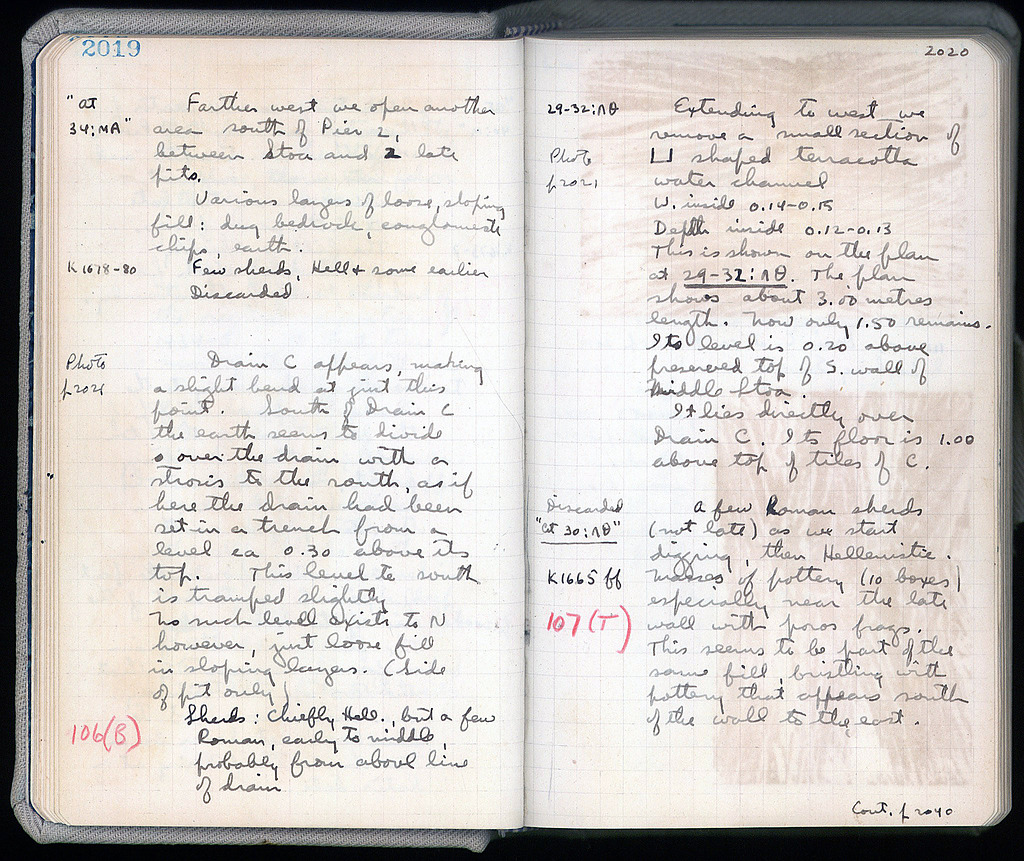 2019
"at
34:ΜΑ"
Farther west we open another
area south of Pier 2,
between Stoa and 2 late
pits.
Various layers of loose, sloping
fill: dug bedrock, conglomerate
chips, earth.
K 1678-80
Few sherds, Hell + some earlier
Discarded
Photo
p 2021
Drain C appears, making
a slight bend at just this
point. South of Drain C
the earth seems to divide
over the drain with a
strosis to the south, as if
here the drain had been
set in a trench from a
level ca 0.30 above its
top. This level to south
is tramped slightly
No such level exists to N
however, just loose fill
in sloping layers. (Side
of pit only)
106(B)
Sherds: Chiefly Hell., but a few
Roman, early to middle,
probably from above line
of drain
2020
29-32:ΛΘ
Photo
p 2021
Extending to west we
remove a small section of
⊔ shaped terracotta
water channel
W. inside 0.14-0.15
Depth inside 0.12-0.13
This is shown on the plan
at 29-32:ΛΘ. The plan
shows about 3.00 metres
length. Now only 1.50 remains.
Its level is 0.20 above
preserved top of S. wall of
Middle Stoa.
It lies directly over
Drain C. Its floor is 1.00
above top of tiles of C.
Discarded
"at 30:ΛΘ"
A few Roman sherds
(not late) as we start
digging, then Hellenistic.
K1665 ff
107(T)
Masses of pottery (10 boxes)
especially near the late
wall with poros frags.
This seems to be part of the
same fill, bristling with
pottery that appears south
of the wall to the east.
Cont. p 2040